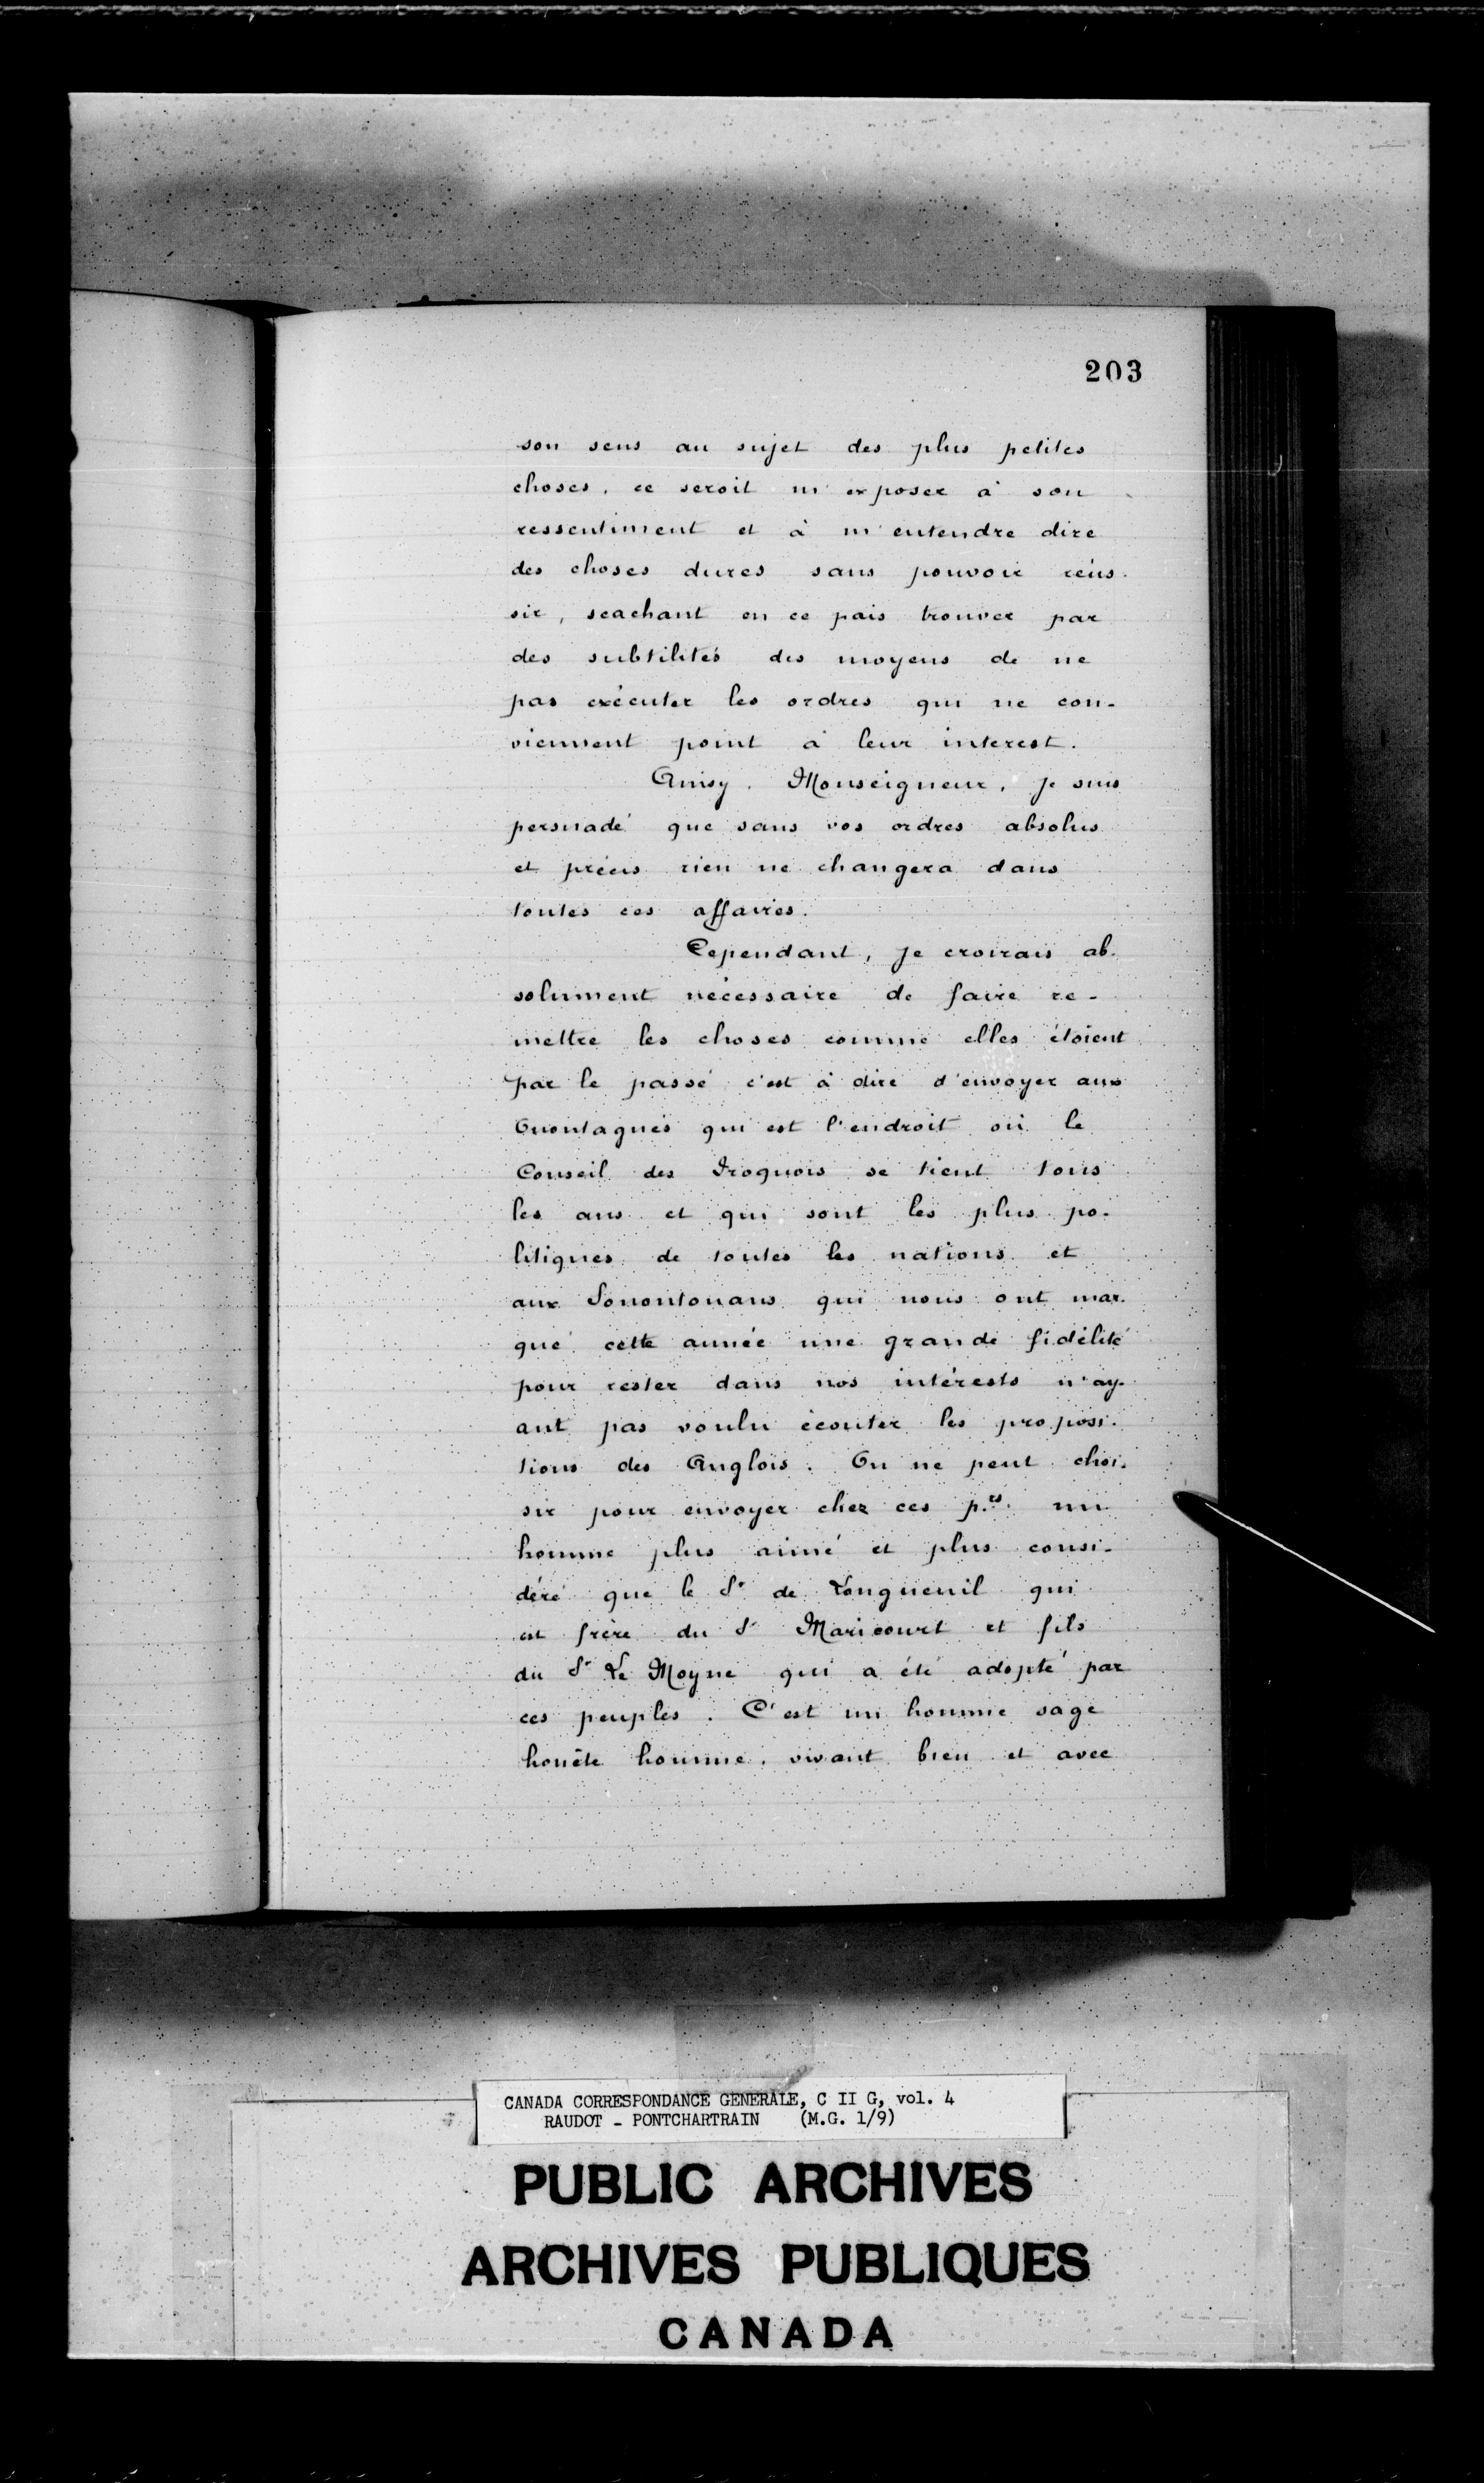 203
son sens au sujet des plus petites
choses, ce seroit m'exposer à son
ressentiment et à m'entendre dire
des choses dures sans pouvoir réus-
sir, scachant en ce païs trouver par
des subtilités des moyens de ne
pas exécuter les ordres qui ne con-
viennent point à leur interest.
Ainsy, Monseigneur, je suis
persuadé que sans vos ordres absolus
et précis rien ne changera dans
toutes ces affaires.
Cependant, je croirais ab-
solument nécessaire de faire re-
mettre les choses comme elles étoient
par le passé c'est à dire d'envoyer aux
Onontagués qui est l'endroit où le
Conseil des Iroquois se tient tous
les ans et qui sont les plus po-
litiques de toutes les nations et
aux Sonontouans qui nous ont mar-
qué cette année une grande fidélité
pour rester dans nos intérests n'ay-
ant pas voulu écouter les proposi-
tions des Anglois. On ne peut choi-
sir pour envoyer chez ces p.es un
homme plus aimé et plus consi-
déré que le Sr de Longueuil qui
est frère du Sr Maricourt et fils
du Sr Le Moyne qui a été adopté par
ces peuples. C'est un homme sage
honête homme, vivant bien et avec
CANADA CORRESPONDANCE GENERALE, C II G, vol. 4
RAUDOT - PONTCHARTRAIN (M.G. 1/9)
PUBLIC ARCHIVES
ARCHIVES PUBLIQUES
CANADA